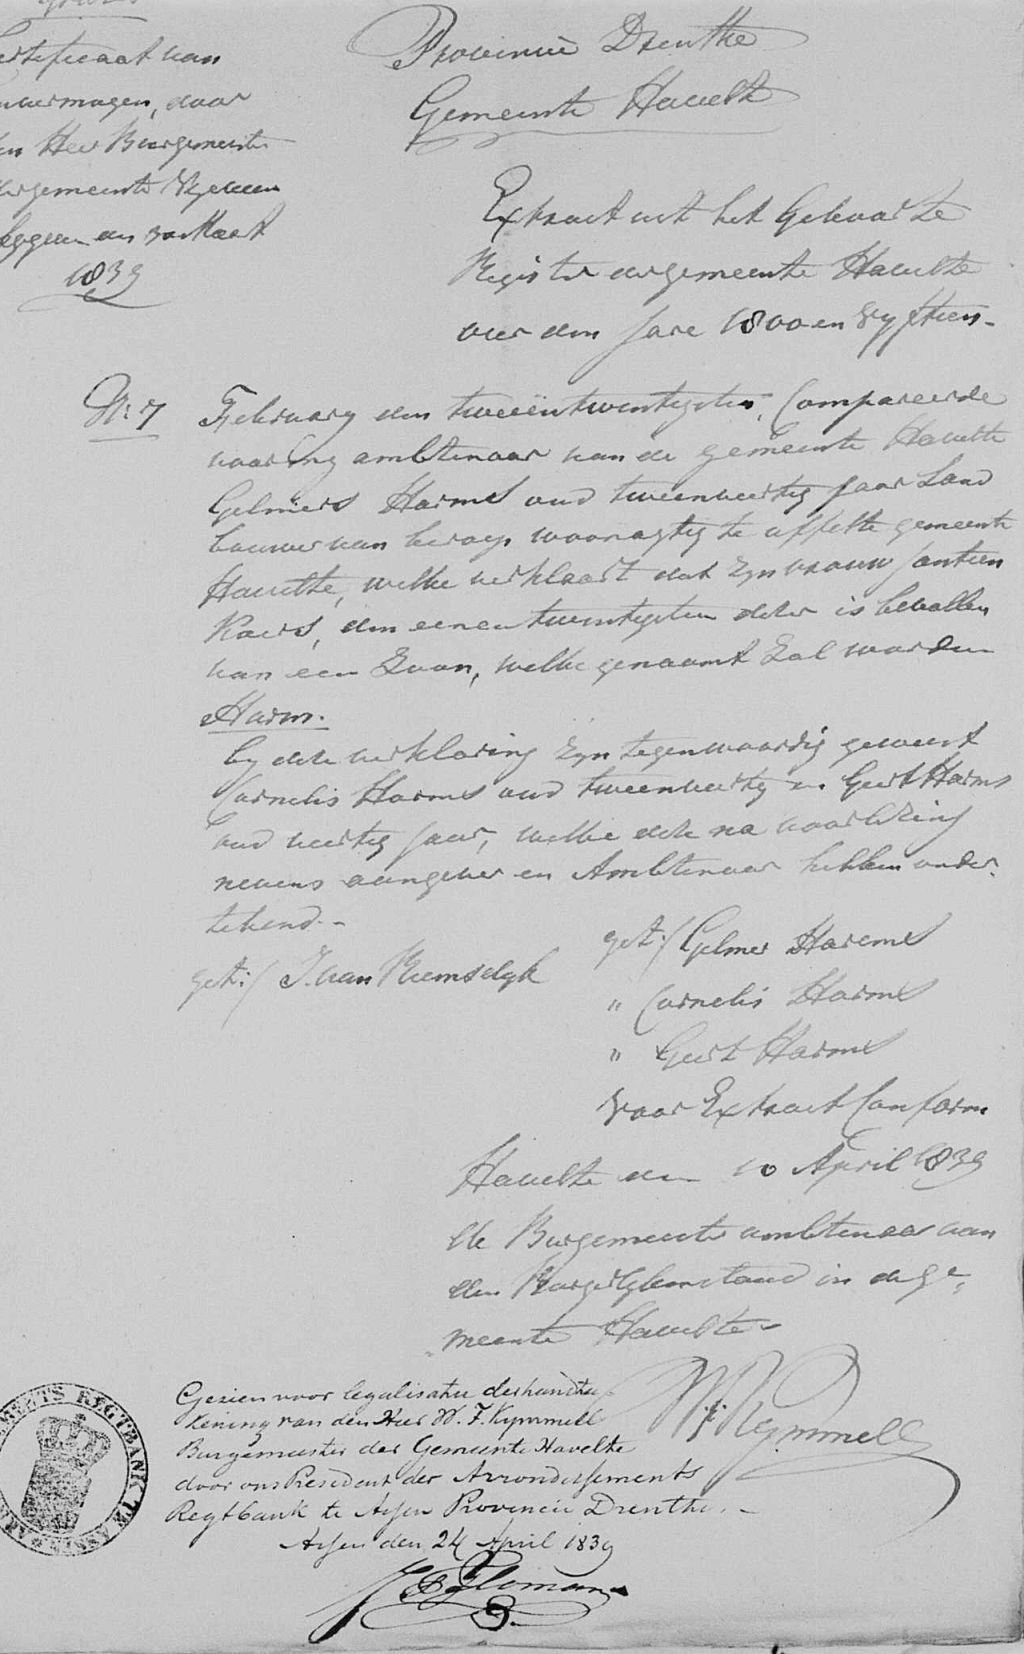 Certificaat van
onvermogen, door
den Heer Burgemeester
der gemeente
afgegeven den 30 Maart
1839
Provincie Drenthe
Gemeente Havelte
Extract uit het Geboorte
Register der gemeente Havelte
over den Jare 1800 en Vyftien.
N: 7 February den tweeëntwintigsten, Compareerde
voor my ambtenaar van de gemeente Havelte
Gelmers Harms oud tweenveertig Jaar Land
bouwer van beroep woonagtig te Uffelte gemeente
Havelte, welke verklaart dat zyn vrouw Jantien
Koers, den eenentwintigsten dezer is bevallen
van een Zoon, welke genaamt Zal worden
Harm.
by deze verklaring zyn tegenwoordig geweest
Cornelis Harms oud tweenveertig en Geert Harms
oud veertig Jaar, welke deze na voorlezing
nevens aangever en Ambtenaar hebben onder-
tekend.-
get:/ J. van Riemsdyk
get:/ Gelmer Harems
" Cornelis Harms
" Geert Harms
Voor Extract Conform
Havelte den 10 April 1839
De Burgemeester ambtenaar van
den Burgerlyken stand in de ge-
meente Havelte
W. J. Kymmell
Gezien voor legalisatie der handtee-
kening van den Heer W. J. Kymmell
Burgemeester der Gemeente Havelte
door ons President der Arrondissements
Regtbank te Assen Provincie Drenthe
Assen den 24 April 1839
REGTBANK TE ASSEN